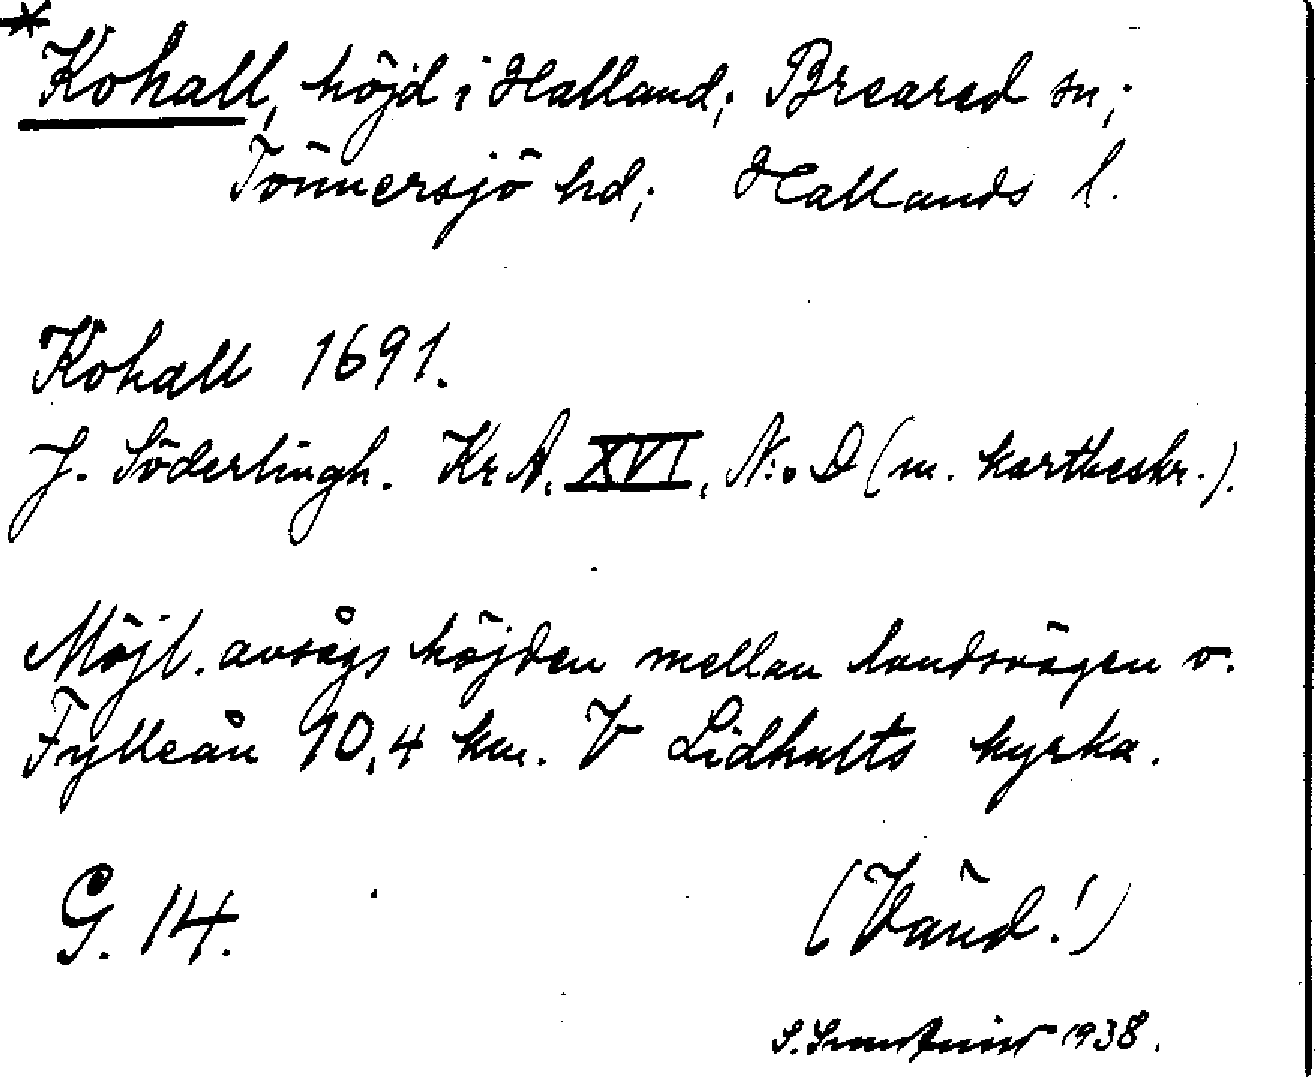 *Kohall, höjd i Halland; Breared sn;
Tönnersjö hd; Hallands l.
Kohall 1691.
J. Söderlingh. Kr.A. XVI, N:o D (m. kartbeskr.).
Möjl. avsågs höjden mellan landsvägen o.
Fylleån 10,4 km. V Lidhults kyrka.
G. 14.
(Vänd!)
S. 1938.